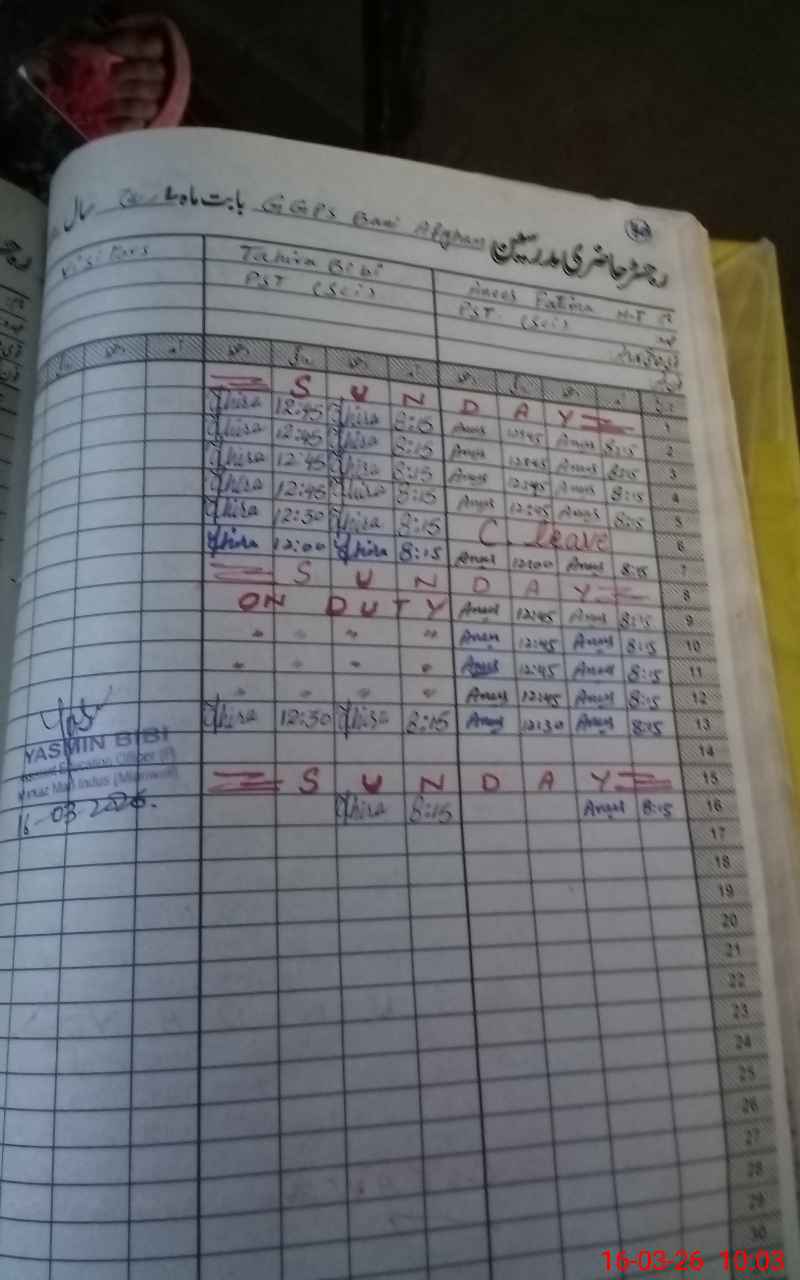 رجسٹر حاضری مدرسین GGPS Bani Afghan بابت ماہ سال
Visitors Tahira Bibi Anees Fatima H.T
PST (Sci) PST. (Sci)
S U N D A Y 1
Thira 12:45 Thira 8:15 Anees 12:45 Anees 8:15 2
Thira 12:45 Thira 8:15 Anees 12:45 Anees 8:15 3
Thira 12:45 Thira 8:15 Anees 12:45 Anees 8:15 4
Thira 12:45 Thira 8:15 Anees 12:45 Anees 8:15 5
Thira 12:30 Thira 8:15 C. leave 6
Thira 12:00 Thira 8:15 Anees 12:00 Anees 8:15 7
S U N D A Y 8
ON DUTY Anees 12:45 Anees 8:15 9
" " " " Anees 12:45 Anees 8:15 10
" " " " Anees 12:45 Anees 8:15 11
" " " " Anees 12:45 Anees 8:15 12
Thira 12:30 Thira 8:15 Anees 12:30 Anees 8:15 13
14
S U N D A Y 15
Thira 8:15 Anees 8:15 16
17
18
19
20
21
22
23
24
25
26
27
28
29
30
YASMIN BIBI
Education Officer (F)
Markaz Mari Indus (Mianwali)
16-03-2026.
16-03-26 10:03